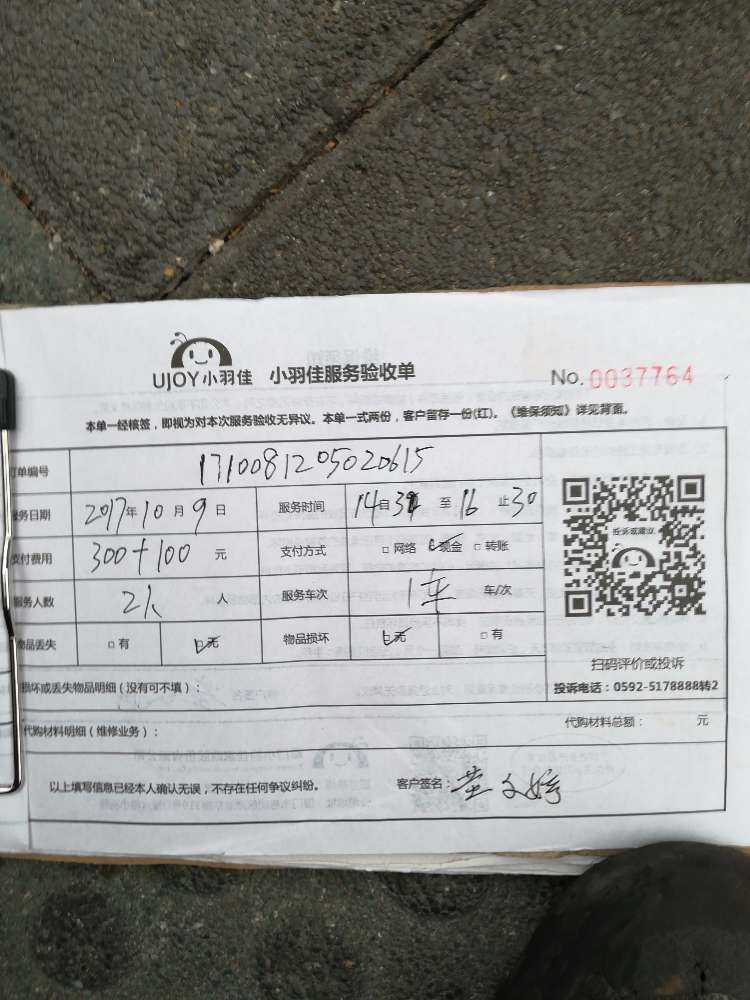 UJOY小羽佳 小羽佳服务验收单 No. 0037764
本单一经核签，即视为对本次服务验收无异议。本单一式两份，客户留存一份(红)。《维保须知》详见背面。
订单编号 1710081205020615
服务日期 2017年10月9日 服务时间 14自34至16止30
支付费用 300+100 元 支付方式 □网络 ☑现金 □转账
服务人数 2人 人 服务车次 1车 车/次
物品丢失 □有 ☑无 物品损坏 ☑无 □有
投诉或建议
扫码评价或投诉
投诉电话：0592-5178888转2
损坏或丢失物品明细（没有可不填）：
代购材料明细（维修业务）： 代购材料总额： 元
以上填写信息已经本人确认无误，不存在任何争议纠纷。 客户签名：